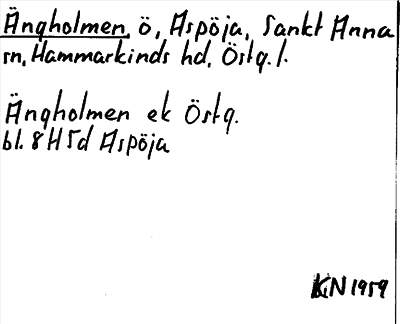 Ängholmen, ö, Aspöja, Sankt Anna
sn, Hammarkinds hd, Östg. l.
Ängholmen ek Östg.
bl. 8H5d Aspöja
KN 1959